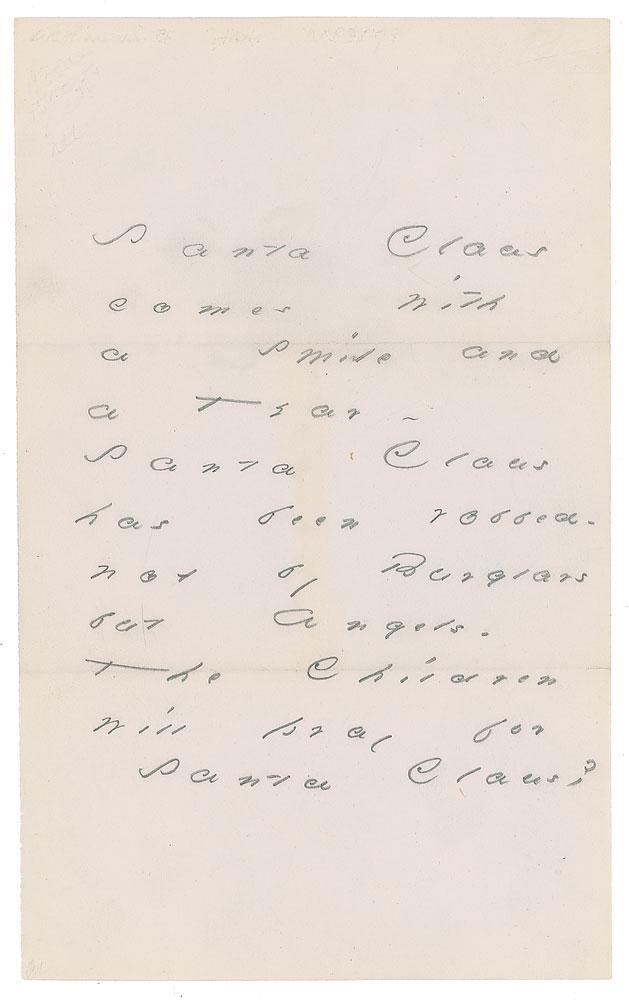 Santa Claus
comes with
a Smile and
a Tear -
Santa Claus
has been robbed -
not by Burglars
but Angels.
The Children
will pray for
Santa Claus?